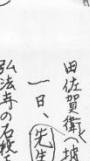 田佐賀衛(坡
一日、先生
弘法寺の石段